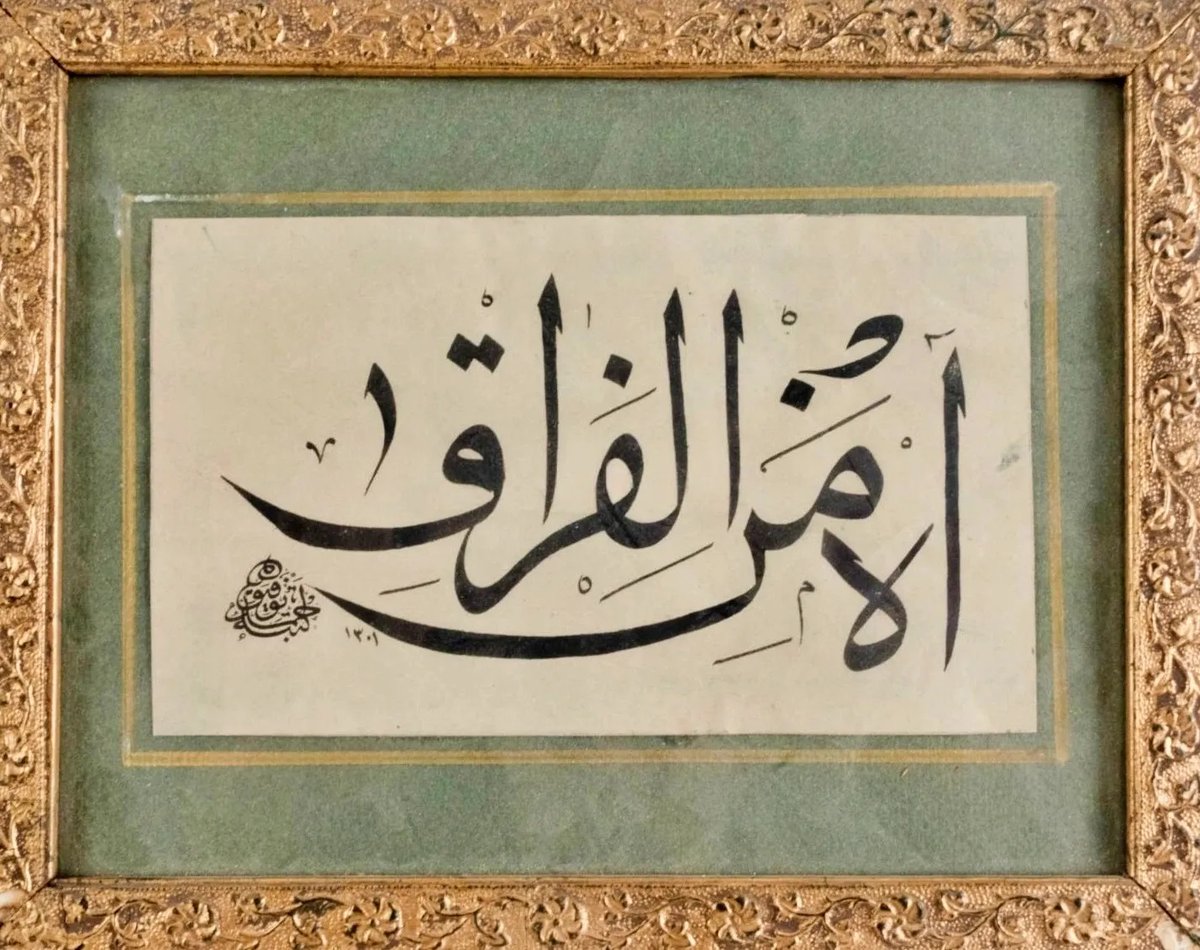 آه من الفراق
كتبه توفيق
١٣٠١